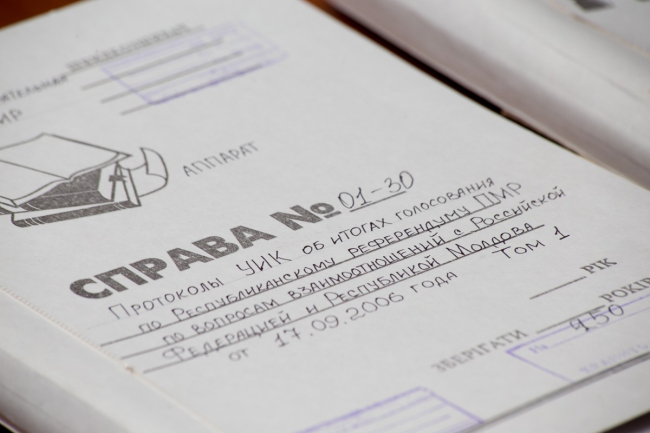 ПМР
АППАРАТ
СПРАВА № 01-30
Протоколы УИК об итогах голосования
по Республиканскому референдуму ПМР
по вопросам взаимоотношений с Российской
Федерацией и Республикой Молдова
от 17.09.2006 года Том 1
РІК
ЗБЕРІГАТИ РОКІВ